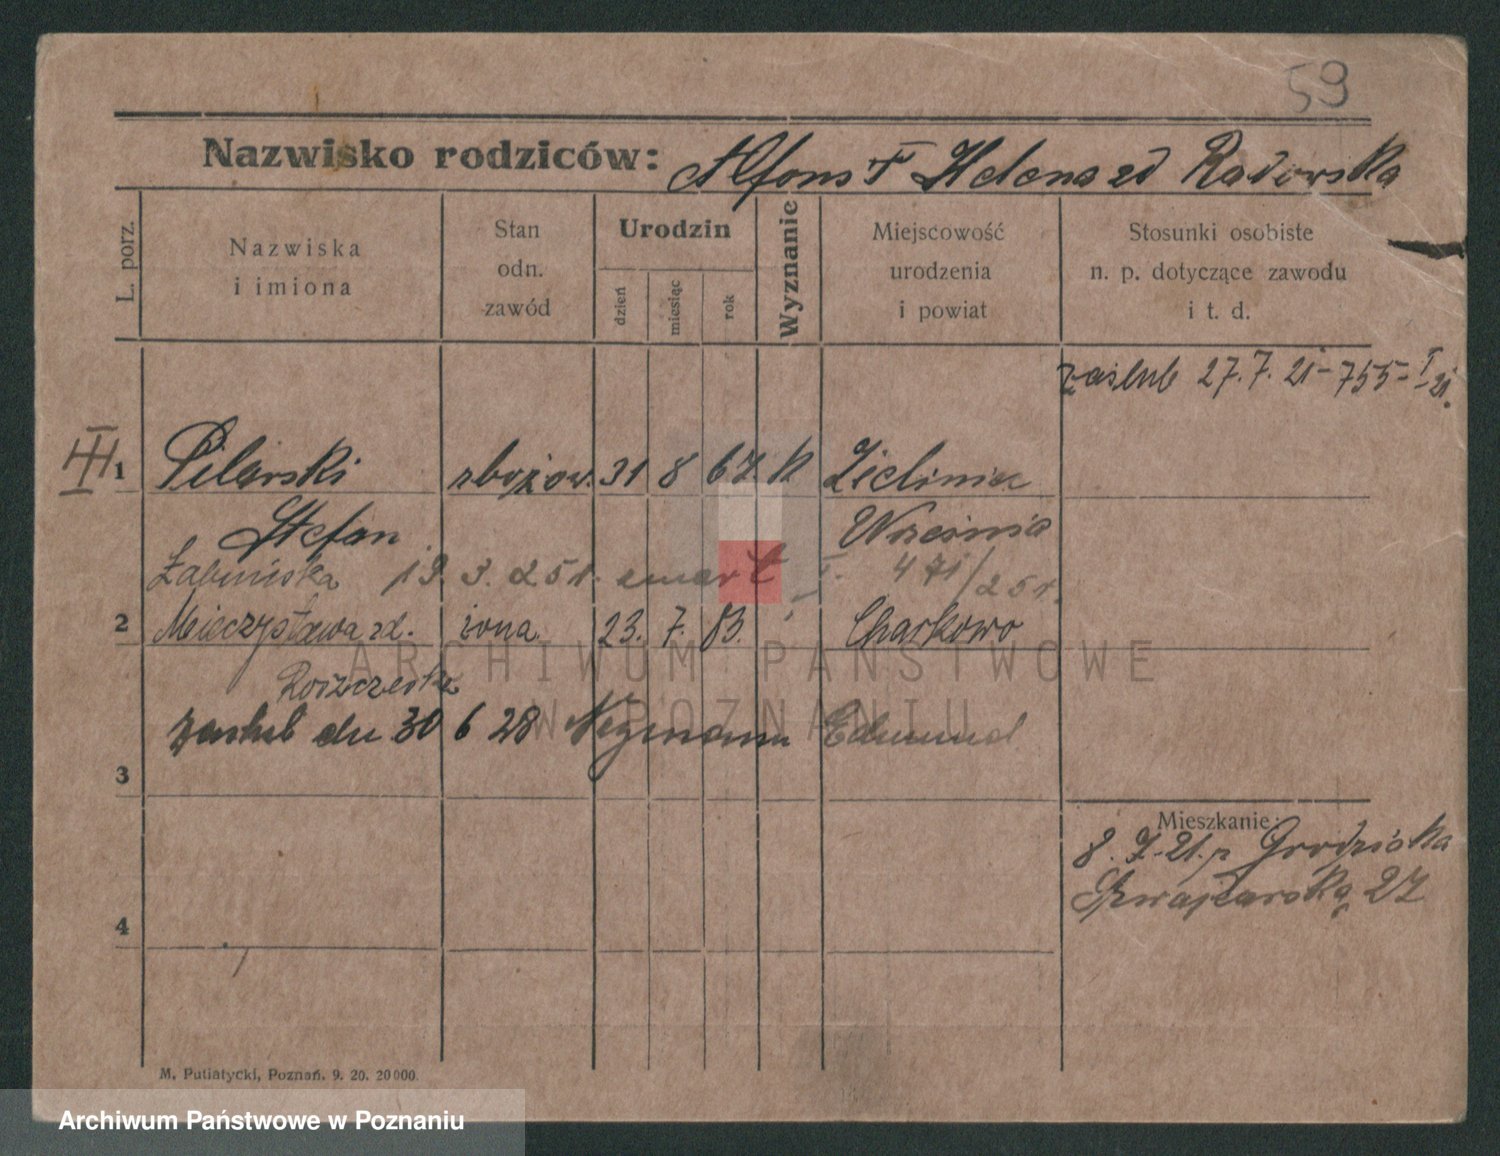 59
Nazwisko rodziców: Alfons i Helena zd Radowska
L. porz.
Nazwiska
i imiona
Stan
odn.
zawód
Urodzin
dzień
miesiąc
rok
Wyznanie
Miejscowość
urodzenia
i powiat
Stosunki osobiste
n. p. dotyczące zawodu
i t. d.
zaślub 27.7.21-755-I 21.
III
1 Pilarski 31 8 67. K
Stefan Września
19. 3. 251. zmarł 471/251.
2 Mieczysława zd. żona. 23. 7. 83. Charkowo
zaslub dn 30 6 28 Edmund
3
Mieszkanie:
8. 7. 21. p Grodziska
Szwajcarska 27
4
M. Putiatycki, Poznań. 9. 20. 20000.
ARCHIWUM PAŃSTWOWE
W POZNANIU
Archiwum Państwowe w Poznaniu